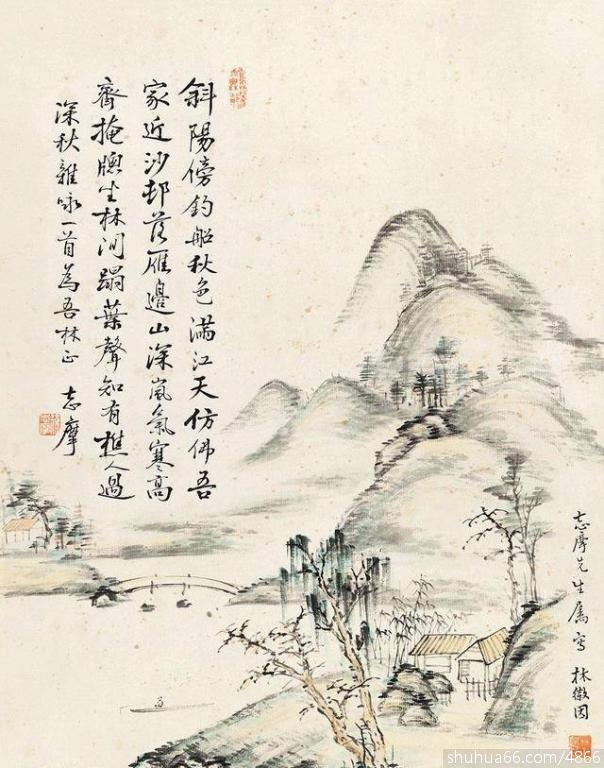 斜陽傍釣船秋色滿江天仿佛吾
家近沙邨落雁邊山深嵐氣寒高
齋掩牕坐林間蹋葉聲知有樵人過
深秋雜咏一首為吾林正 志摩
志摩先生属写 林徽因
shuhua66.com/4866